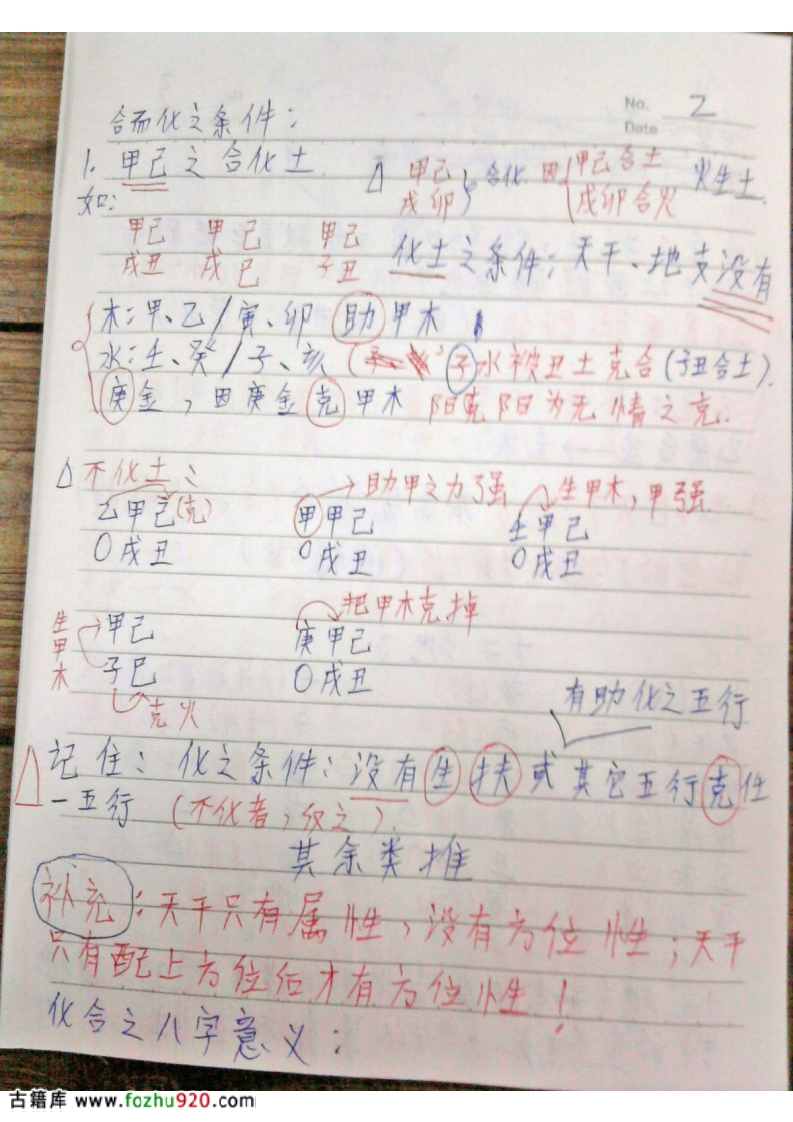 No. 2
Date
合而化之条件:
1. 甲己之合化土. △ 甲己 戊卯 合化 因 甲己合土 戊卯合火 火生土.
如:
甲己 甲己 甲己
戌丑 戌巳 子丑
化土之条件:天干、地支没有
木:甲、乙/寅、卯 助甲木
水:壬、癸/子、亥 ( 子水被丑土克合(子丑合土).
庚金,因庚金克甲木 阳克阳为无情之克.
△ 不化土:
乙甲己(克) 甲甲己 →助甲之力强 壬甲己 生甲木,甲强.
〇戌丑 〇戌丑 〇戌丑
生甲木 →甲己 庚甲己 把甲木克掉
子巳 〇戌丑
克火
有助化之五行
△ 记住:化之条件:没有生扶或其它五行克任
一五行 (不化者,反之).
其余类推
补充:天干只有属性,没有方位性;天干
只有配上方位后才有方位性!
化合之八字意义:
古籍库 www.fozhu920.com